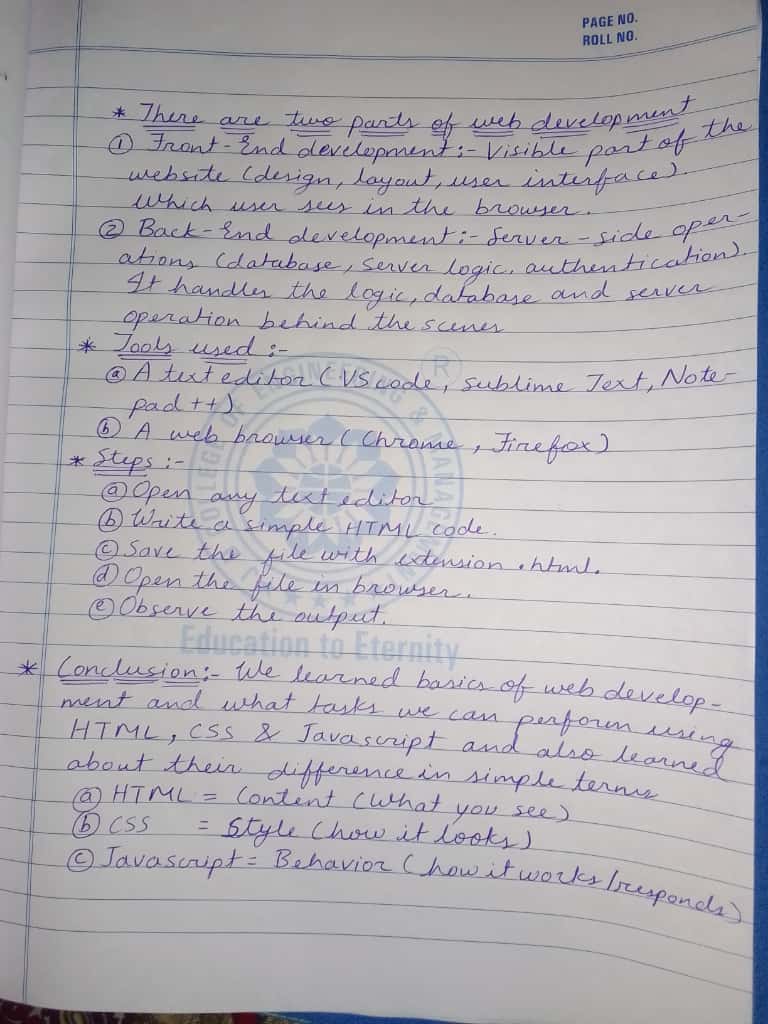 PAGE NO.
ROLL NO.
* There are two parts of web development
① Front-End development:- Visible part of the
website (design, layout, user interface).
Which user sees in the browser.
② Back-End development:- Server-side oper-
ations (database, server logic, authentication).
It handles the logic, database and server
operation behind the scenes
* Tools used :-
ⓐ A text editor (VS code, Sublime Text, Note-
pad ++)
ⓑ A web browser (Chrome, Firefox)
* Steps :-
ⓐ Open any text editor
ⓑ Write a simple HTML code.
ⓒ Save the file with extension .html.
ⓓ Open the file in browser.
ⓔ Observe the output.
Education to Eternity
* Conclusion:- We learned basics of web develop-
ment and what tasks we can perform using
HTML, CSS & Javascript and also learned
about their difference in simple terms
ⓐ HTML = Content (What you see)
ⓑ CSS = Style (how it looks)
ⓒ Javascript = Behavior (how it works/responds)